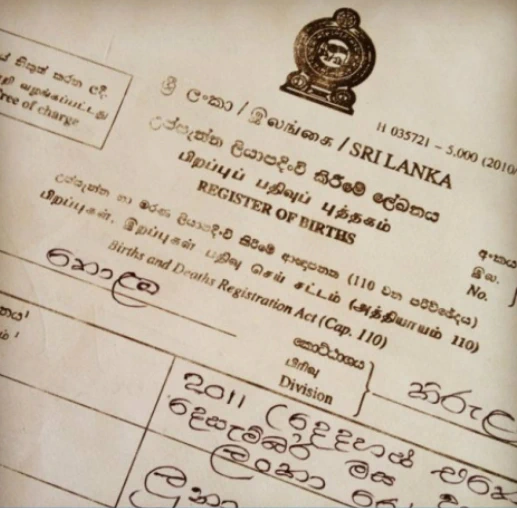 නිකුත් කරන ලදී.
வழங்கப்பட்டது
free of charge
H 035721 – 5,000 (2010/
ශ්‍රී ලංකා / இலங்கை / SRI LANKA
උප්පැන්න ලියාපදිංචි කිරීමේ ලේඛනය
பிறப்புப் பதிவுப் புத்தகம்
REGISTER OF BIRTHS
උප්පැන්න හා මරණ ලියාපදිංචි කිරීමේ ආඥාපනත (110 වන පරිච්ඡේදය)
பிறப்புகள், இறப்புகள் பதிவு செய் சட்டம் (அத்தியாயம் 110)
Births and Deaths Registration Act (Cap. 110)
අංකය
இல.
No.
කොළඹ
කොට්ඨාශය
பிரிவு
Division
තිරුල
2011 (දෙදහස් එකො
දෙසැම්බර් මස
ලංකා